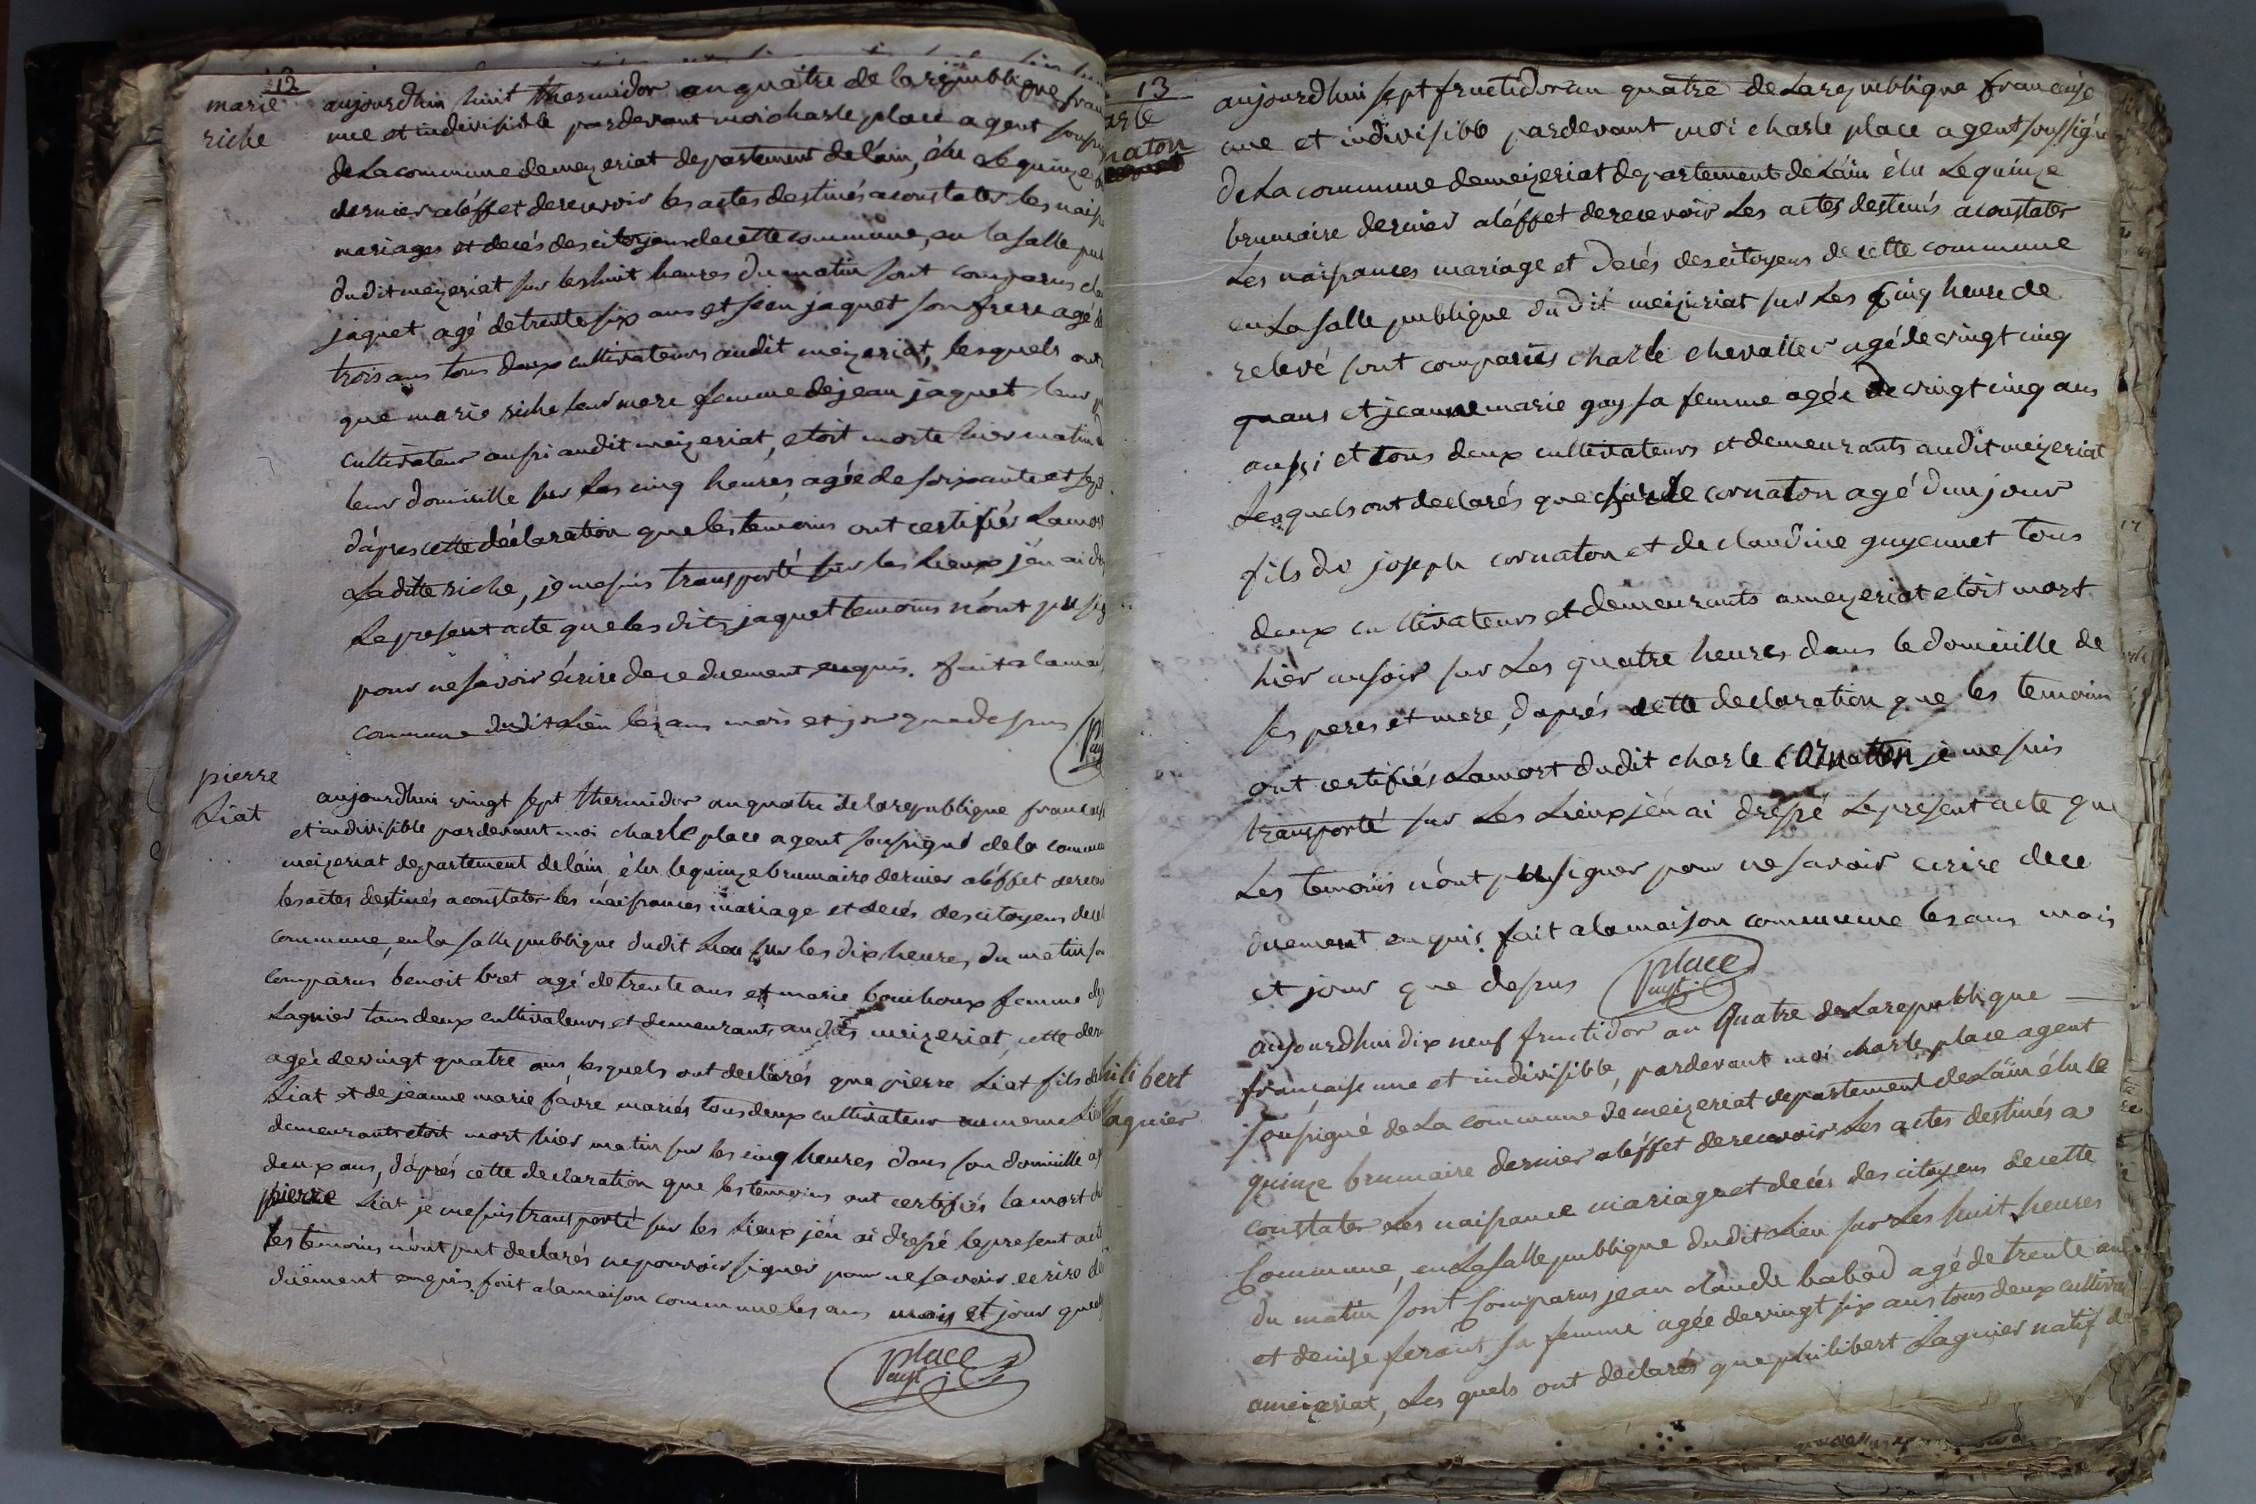 12
marie
riche
aujourdhui huit thermidor an quatre de la republique fran
une et indivisible pardevant moi charle place agent soussi
de La commune de mezeriat departement de lain, élu Le quinze
dernier a léffet de recevoir les actes destinés a constater les naiss
mariages et decés des citoyens de cette commune, en la salle pu
dudit meizeriat sur les huit heures du matin sont comparus
jaquet agé de trente six ans et jean jaquet son frere agé de
trois ans tous deux cultivateurs audit meizeriat, lesquels ont
que marie riche leur mere femme de jean jaquet leur
cultivateur aussi audit meizeriat, etoit morte hier matin
leur domicille sur Les cinq heures, agée de soixante et
dáprés cette déclaration que les temoins ont certifiés La mor
Laditte riche, je me suis transporté sur les Lieux j'én ai
Le present acte que les dits jaquet temoins n'ont pu sig
pour ne savoir écrire de ce duement enquis. fait a la mai
commune dudit Lieu les ans mois et jour que dessus
pierre
Liat
aujourdhui vingt sept thermidor an quatre de la republique francais
et indivisible pardevant moi charle place agent soussigné de la commu
meizeriat departement de láin, élu le quinze brumaire dernier a léffet de recev
les actes destinés a constater les náissances mariage et decés des citoyens de cet
commune, en la salle publique dudit Lieu sur les dix heures du matin so
comparus benoit bret agé de trente ans et marie bouchoux femme
Lagnier tous deux cultivateurs et demeurants audit meizeriat, cette der
agée de vingt quatre ans, lesquels ont declarés que pierre Liat fils de
Liat et de jeanne marie fávre mariés tous deux cultivateur au meme Lieu
demeurants etoit mort hier matin sur les cinq heures dans son domicille a
deux ans, dáprés cette declaration que les temoins ont certifiés la mort d
pierre Liat je me suis transporté sur les Lieux j'én ai dressé le present acte
les temoins n'ont put declarés ne pouvoir signer pour ne savoir ecrire de
duëment enquis. fait a la maison commune les ans mois et jour que
place
agt
13
arle
naton
aujourdhui sept fructidor an quatre de La republique française
une et indivisible pardevant moi charle place agent soussigné
de La commune de meizeriat departement de Láin élu Le quinze
brumaire dernier a léffet de recevoir Les actes destinés a constater
Les naissances mariage et decés des citoyens de cette commune
en La salle publique dudit meizeriat sur Les cinq heure de
relevé sont comparus charle chevallier agé de vingt cinq
ans et jeanne marie guy sa femme agée de vingt cinq ans
aussi et tous deux cultivateurs et demeurants audit meizeriat
Lesquels ont declarés que charle cornaton agé d'un jour
fils de joseph cornaton et de claudine guyennet tous
deux cultivateurs et demeurants a mezeriat etoit mort
hier au soir sur Les quatre heures dans le domicille de
ses peres et mere, d'aprés cette declaration que les temoins
ont certifiés La mort dudit charle cornaton je me suis
transporté sur Les Lieux j'én ai dressé Le present acte que
Les temoins n'ont pu signer pour ne savoir ecrire de ce
duement enquis. fait a la maison commune les ans mois
et jour que dessus
place
agt
hilibert
Lagnier
aujourdhui dix neuf fructidor an Quatre de La republique
francaise une et indivisible, pardevant moi charle place agent
soussigné de La commune de meizeriat departement de Láin élu le
quinze brumaire dernier a léffet de recevoir Les actes destinés a
constater Les naissance mariage et decés des citoyens de cette
Commune, en La salle publique dudit Lieu sur Les huit heures
du matin sont Comparus jean claude babad agé de trente ans
et denise feraut sa femme agée de vingt six ans tous deux cultiva
a meizeriat, Les quels ont declarés que philibert Lagnier natif de